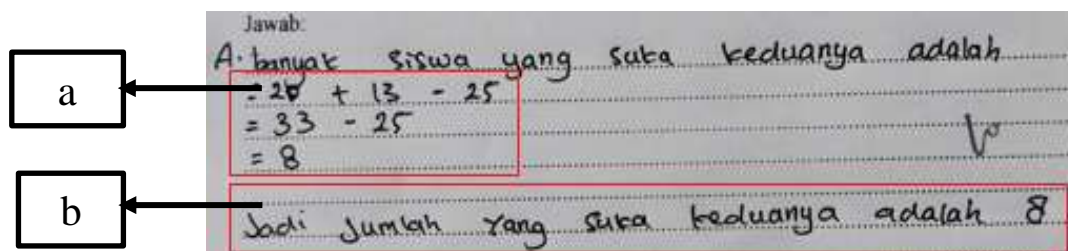 Jawab:
A. banyak siswa yang suka keduanya adalah
a
= 20 + 13 - 25
= 33 - 25
= 8
b
Jadi Jumlah Yang suka keduanya adalah 8